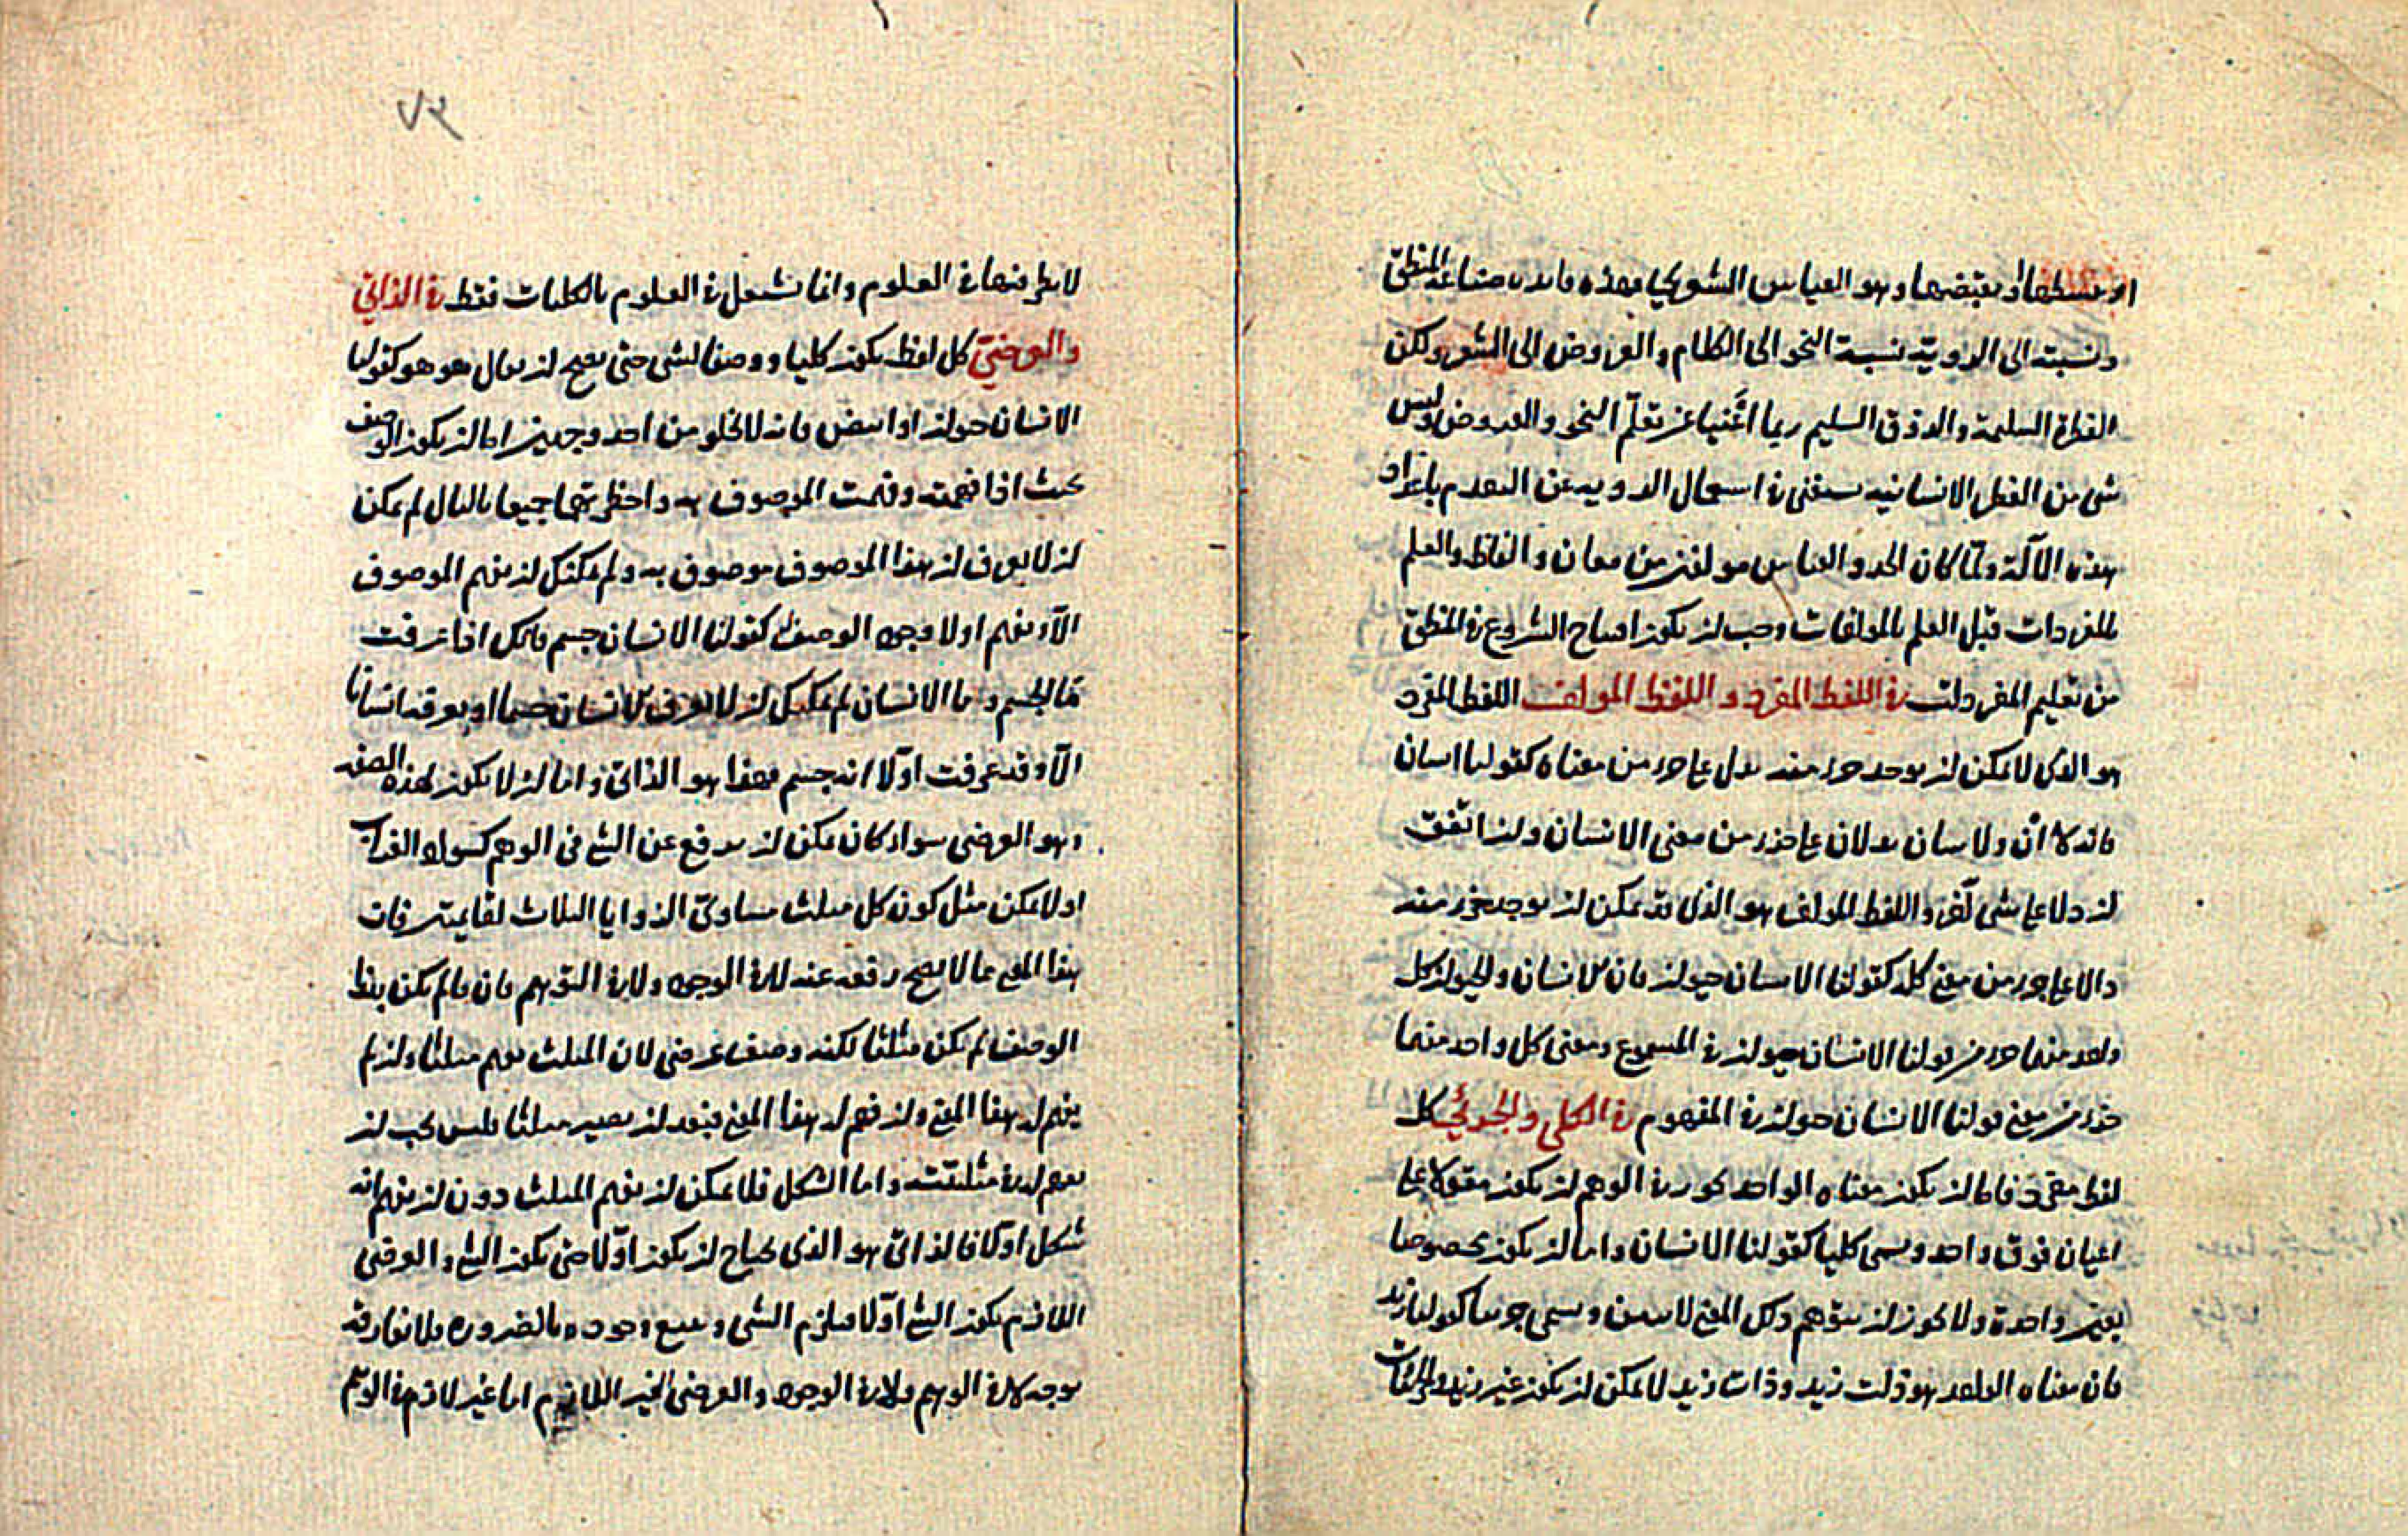 او يبسطها او يقبضها وهو القياس الشعري فهذه فايدة صناعة المنطق
ونسبته الى الروية نسبة النحو الى الكلام والعروض الى الشعر ولكن
الفطرة السليمة والذوق السليم ربما اغنيا عن تعلّم النحو والعروض وليس
شى من الفطر الانسانيه مستغنى فى استعمال الرويه عن التقدم باعداد
هذه الآلة ولمّا كان الحد والقياس مولفين من معان والفاظ والعلم
بالمفردات قبل العلم بالمولفات وجب ان يكون افتتاح الشروع فى المنطق
من تعليم المفردات فى اللفظ المفرد و اللفظ المولف اللفظ المفرد
هو الذى لا يمكن ان يوجد جزء منه يدل على جزء من معناه كقولنا انسان
فانه لا ان ولا سان يدلان على جزء من معنى الانسان وان اتفق
ان دلا على شى آخر واللفظ المولف هو الذى قد يمكن ان يوجد جزء منه
دالا على جزء من معنى كله كقولنا الانسان حيوان فان الانسان والحيوان كل
واحد منهما جزء من قولنا الانسان حيوان فى المسموع ومعنى كل واحد منهما
جزء من معنى قولنا الانسان حيوان فى المفهوم فى الكلي والجزئي كل
لفظ مفرد فاما ان يكون معناه الواحد يجوز فى الوهم ان يكون مقولا على
اعيان فوق واحد ويسمى كليا كقولنا الانسان واما ان يكون مخصوصا
بعين واحدة ولا يجوز ان يتوهم ذلك المعنى لاثنين ويسمى جزئيا كقولنا زيد
فان معناه الواحد هو ذات زيد وذات زيد لا يمكن ان يكون غير زيد والجزئيات
٧٣
لا ينظر فيها فى العلوم وانما يشتغل فى العلوم بالكليات فقط فى الذاتي
والعرضيّ كل لفظ يكون كليا ووصفا لشى حتى يصح ان يقال هو هو كقولنا
الانسان حيوان او ابيض فانه لا يخلو من احد وجهين اما ان يكون الوصف
بحيث اذا فهمته وفهمت الموصوف به واخطرتهما جميعا بالبال لم يمكن
ان لا يعرف ان هذا الموصوف موصوف به ولم يمكنك ان تفهم الموصوف
الّا وتفهم اولا وجود الوصف له كقولنا الانسان جسم فانك اذا عرفت
ما الجسم وما الانسان لم يمكنك ان لا تعرف الانسان جسما او تعرفه انسانا
الّا وقد عرفت اوّلا انه جسم فهذا هو الذاتيّ واما ان لا يكون لهذه الصفه
وهو العرضى سواء كان يمكن ان يرفع عن الشى فى الوهم كسواد الغراب
او لا يمكن مثل كون كل مثلث مساوىّ الزوايا الثلاث لقايمتين فان
هذا المعنى مما لا يصح رفعه عنه لا فى الوجود ولا فى التوهم فان ما لم يكن بهذا
الوصف لم يكن مثلثا لكنه وصف عرضى لان المثلث يفهم مثلثا وان لم
يفهم له هذا المعنى وان فهم له هذا المعنى فبعد ان يصير مثلثا فليس يجب ان
يفهم له فى مثلثيته واما الشكل فلا يمكن ان يفهم المثلث دون ان يفهم انه
شكل اولا فالذاتىّ هو الذى يحتاج ان يكون اوّلا حتى يكون الشى والعرضى
اللازم يكون الشى اوّلا فيلزم الشى ويتبع وجوده بالضرورة فلا يفارقه
بوجه لا فى الوهم ولا فى الوجود والعرضى الغير اللازم اما غير لازم فى الوهم